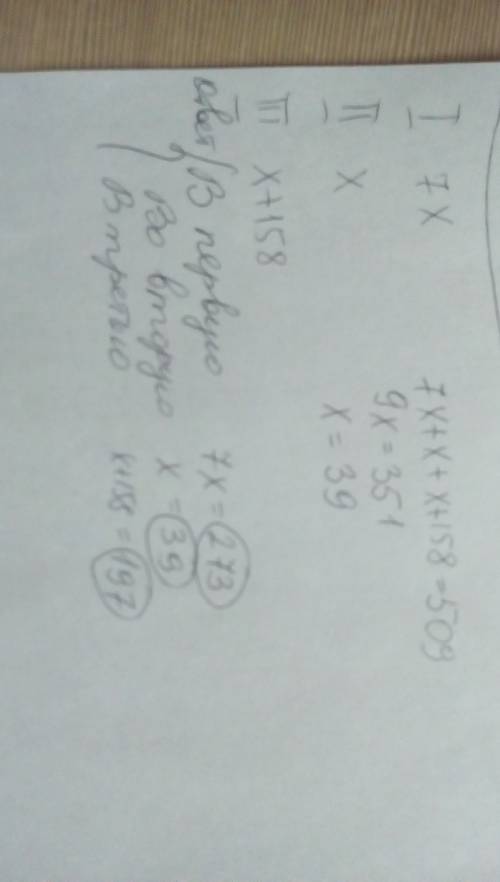 I 7x 7x+x+x+158=509
9x=351
II x x=39
III x+158
ответ В первую 7x=273
Во вторую x=39
В третью x+158=197